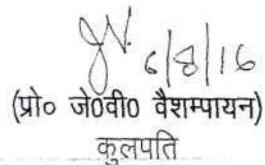 6/8/16
(प्रो० जे0वी0 वैशम्पायन)
कुलपति